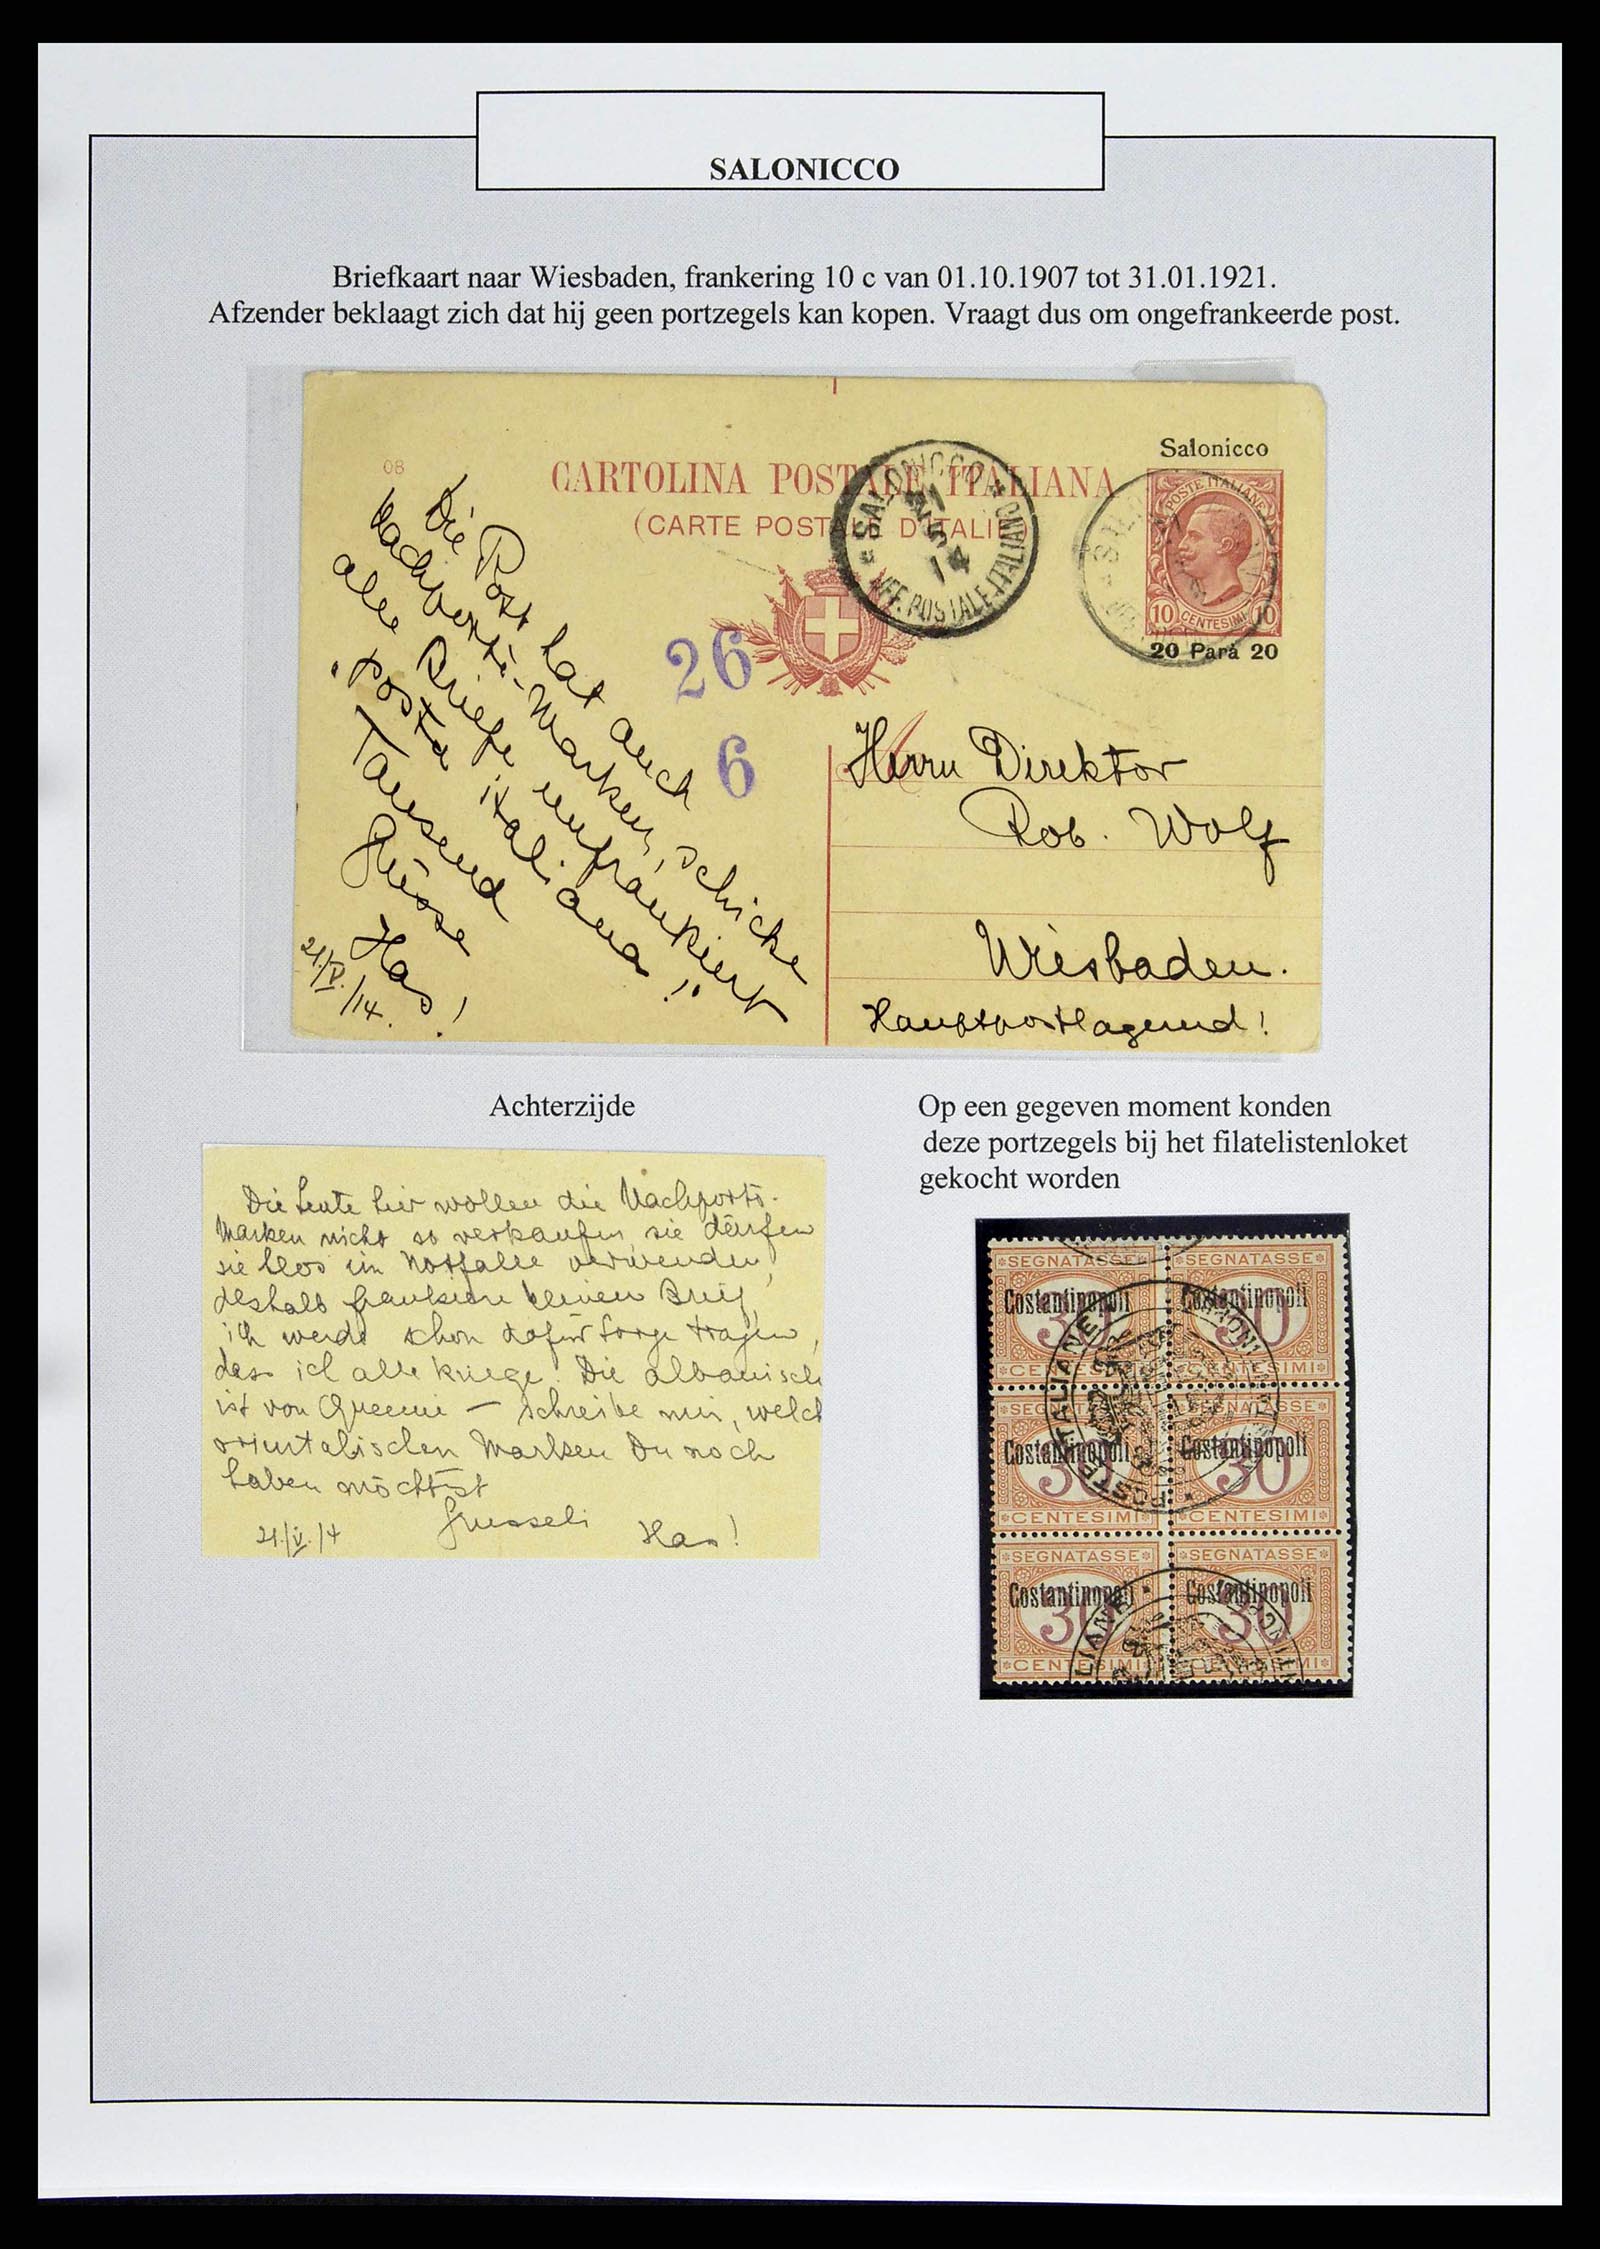 SALONICCO
Briefkaart naar Wiesbaden, frankering 10 c van 01.10.1907 tot 31.01.1921.
Afzender beklaagt zich dat hij geen portzegels kan kopen. Vraagt dus om ongefrankeerde post.
Salonicco
08
CARTOLINA POSTALE ITALIANA
(CARTE POSTALE D'ITALIE)
SALONICCO
UFF. POSTALE ITALIANO
POSTE ITALIANE
10 CENTESIMI 10
20 Parà 20
26
6
Die Post hat auch
Nachporti-Marken, schicke
alle Briefe unfrankiert
"posta italiana"!
Tausend
Grüsse
Has!
21/V./14.
Herrn Direktor
Rob. Wolf
Wiesbaden.
Hauptpostlagernd!
Achterzijde
Die Leute hier wollen die Nachporto-
Marken nicht so verkaufen, sie dürfen
sie blos im Notfalle verwenden,
deshalb frankiere keinen Brief,
ich werde schon dafür Sorge tragen,
dass ich alle kriege. Die albanische
ist von – schreibe mir, welch
orientalischen Marken Du noch
haben möchtest
21/V./14
Has!
Op een gegeven moment konden
deze portzegels bij het filatelistenloket
gekocht worden
SEGNATASSE SEGNATASSE
Costantinopoli Costantinopoli
30 30
CENTESIMI CENTESIMI
SEGNATASSE SEGNATASSE
Costantinopoli Costantinopoli
30 30
CENTESIMI CENTESIMI
SEGNATASSE SEGNATASSE
Costantinopoli Costantinopoli
30 30
CENTESIMI CENTESIMI
POSTE ITALIANE